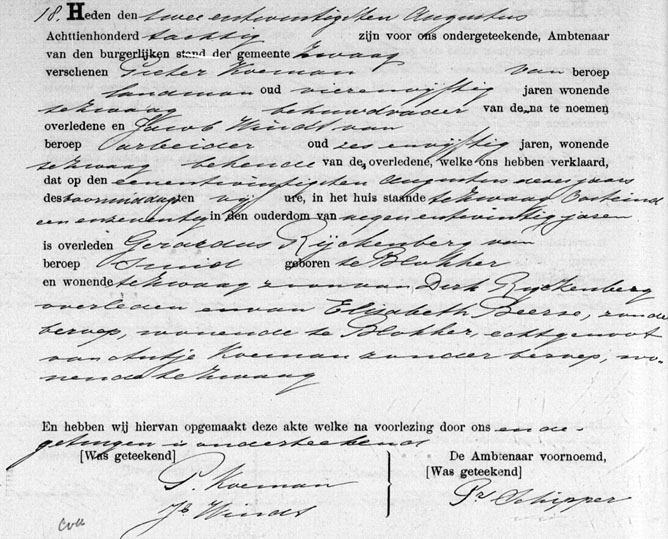 18. Heden den twee entwintigsten Augustus
Achttienhonderd tachtig zijn voor ons ondergeteekende, Ambtenaar
van den burgerlijken stand der gemeente Zwaag
verschenen Pieter Koeman van beroep
landman oud vierenvijftig jaren wonende
te Zwaag behuwdvader van de na te noemen
overledene en Jacob Windt van
beroep arbeider oud zes envijftig jaren, wonende
te Zwaag bekende van de overledene, welke ons hebben verklaard,
dat op den eenentwintigsten Augustus dezes jaars
des voormiddags ten vijf ure, in het huis staande te Zwaag Oosteind
een enzeventig in den ouderdom van negen entwintig jaren
is overleden Gerardus Rijckenberg van
beroep Smid geboren te Blokker
en wonende te Zwaag zoon van Dirk Rijckenberg
overleden en van Elisabeth Beerse, zonder
beroep, wonende te Blokker, echtgenoot
van Antje Koeman zonder beroep, wo-
nende te Zwaag
En hebben wij hiervan opgemaakt deze akte welke na voorlezing door ons en de
getuigen is onderteekend
[Was geteekend] De Ambtenaar voornoemd,
[Was geteekend]
P. Koeman
Pr Schipper
Jb Windt